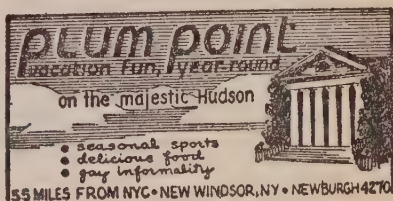 plum point
vacation fun, year-round
on the majestic Hudson
• seasonal sports
• delicious food
• gay informality
55 MILES FROM NYC • NEW WINDSOR, NY • NEWBURGH 4270